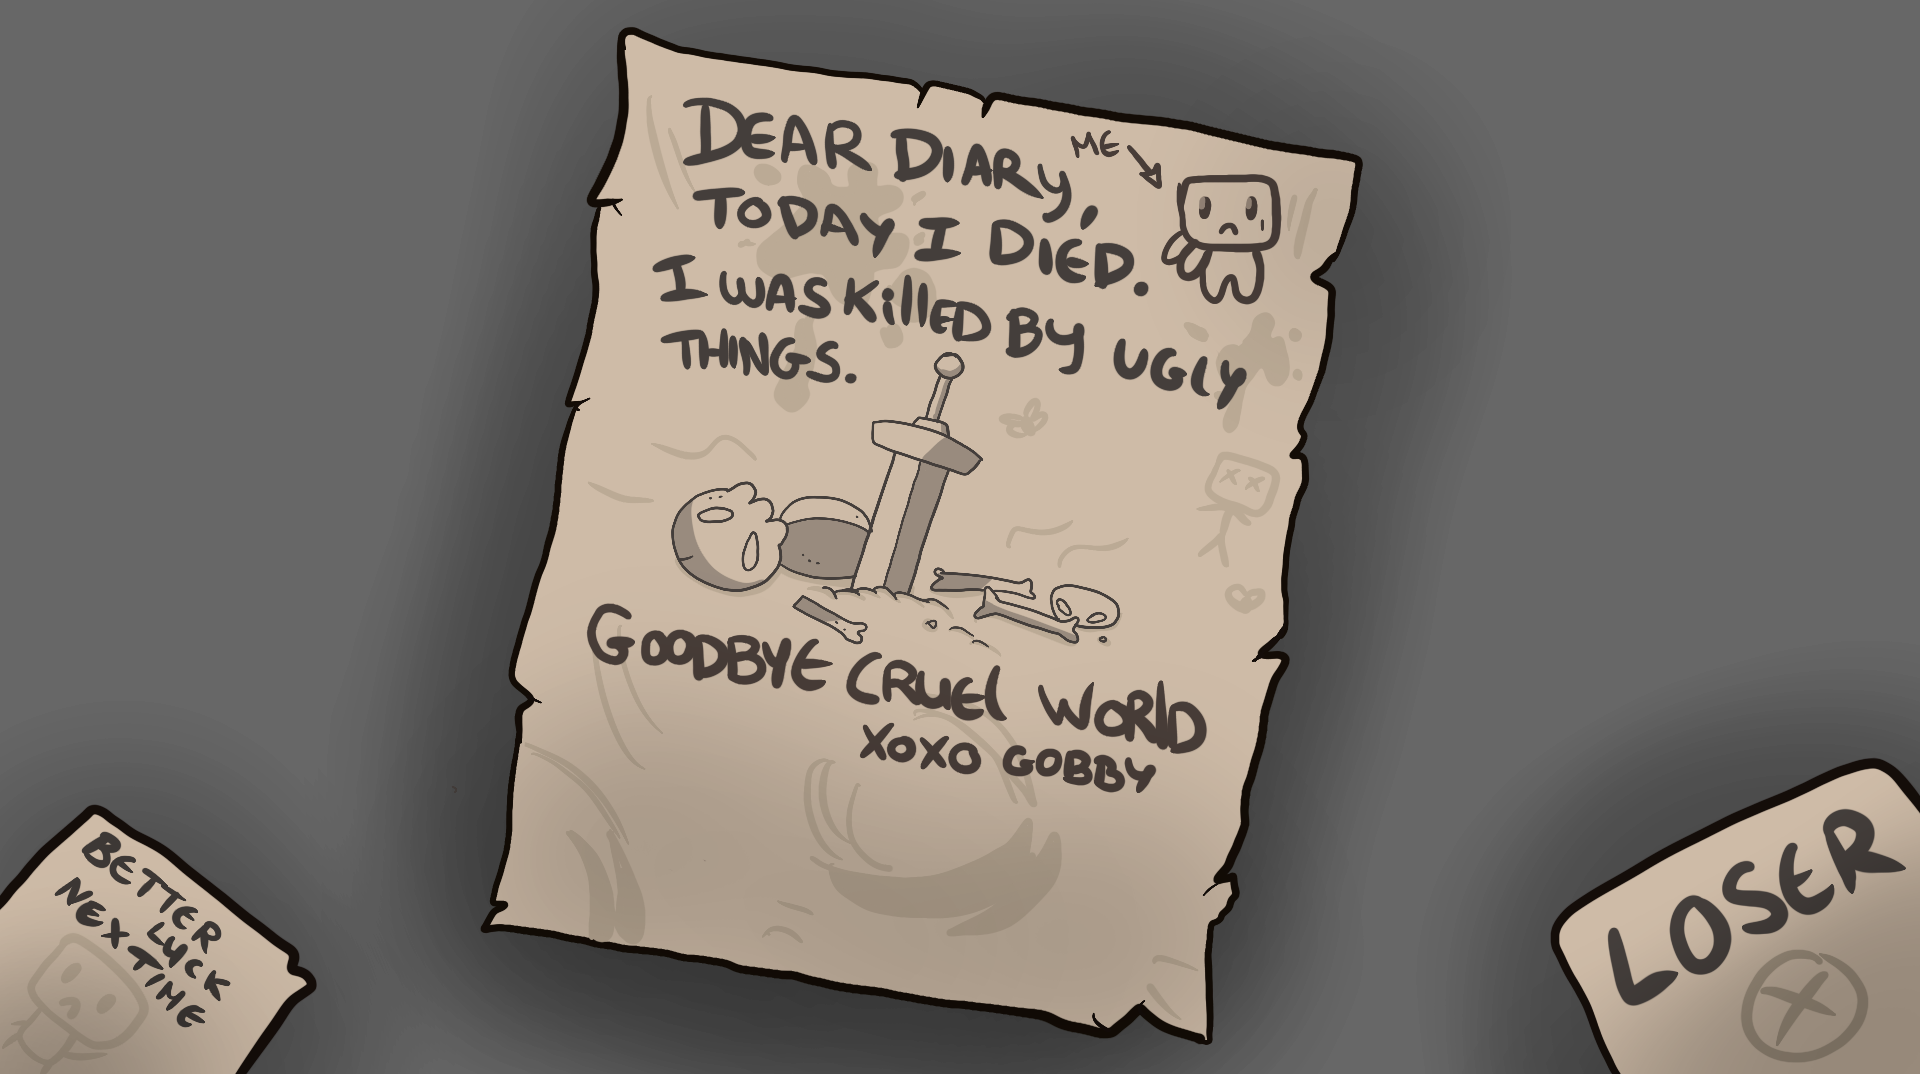 DEAR DIARY,
ME
TODAY I DIED.
I WAS KillED BY UGLY
THINGS.
GOODBYE CRUEl WORlD
XOXO GOBBY
BETTER
LUCK
NEXT TIME
LOSER